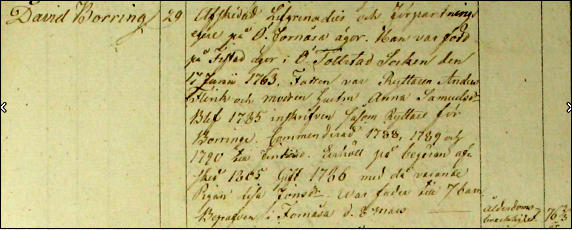 David Borring 29 Afskedad Lifgrenadier och förpantnings
på Ö. Fornåsa ägor. Han var född
på Fistad ägor i Ö Tollstad Socken den
17 Junii 1763. Fadren var Ryttaren Anders
Flink och modren hustru Anna Samuelsd.
Blef 1785 inskrifven såsom Ryttare för
Borringe. Commenderad 1788, 1789 och
1790 till Finland. Erhöll på begäran af-
sked 1805. Gift 1786 med då varande
Pigan Lisa Jonsd. Var fader till 7 barn
Begrafven i Fornåsa d. 8 mars
Ålderdoms
bräcklighet 76